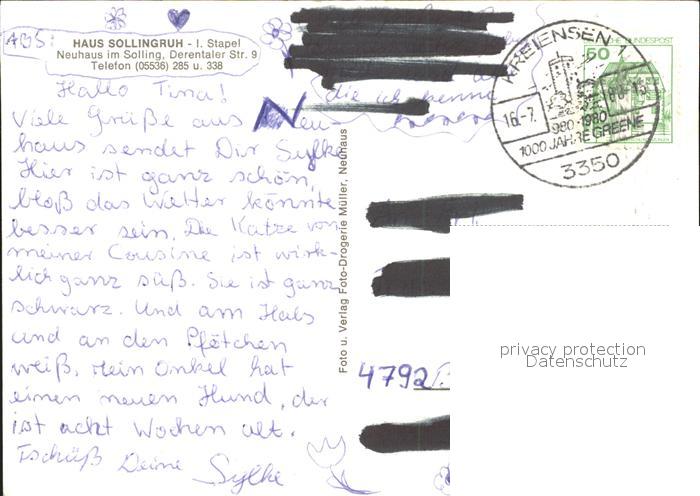 ABS:
HAUS SOLLINGRUH - I. Stapel
Neuhaus im Solling, Derentaler Str. 9
Telefon (05536) 285 u. 338
Hallo Tina!
Viele Grüße aus Neu-
haus sendet Dir Sylke
Hier ist ganz schön,
bloß das Wetter könnte
besser sein. Die Katze von
meiner Cousine ist wirk-
lich ganz süß. Sie ist ganz
schwarz. Und am Hals
und an den Pfötchen
weiß. Mein Onkel hat
einen neuen Hund, der
ist acht Wochen alt.
Tschüß Deine Sylke
Foto u. Verlag Foto-Drogerie Müller, Neuhaus
die ich kenne
KREIENSEN 1
16.-7. 80-15
980-1980
1000 JAHRE GREENE
3350
50
DEUTSCHE BUNDESPOST
4792
privacy protection
Datenschutz